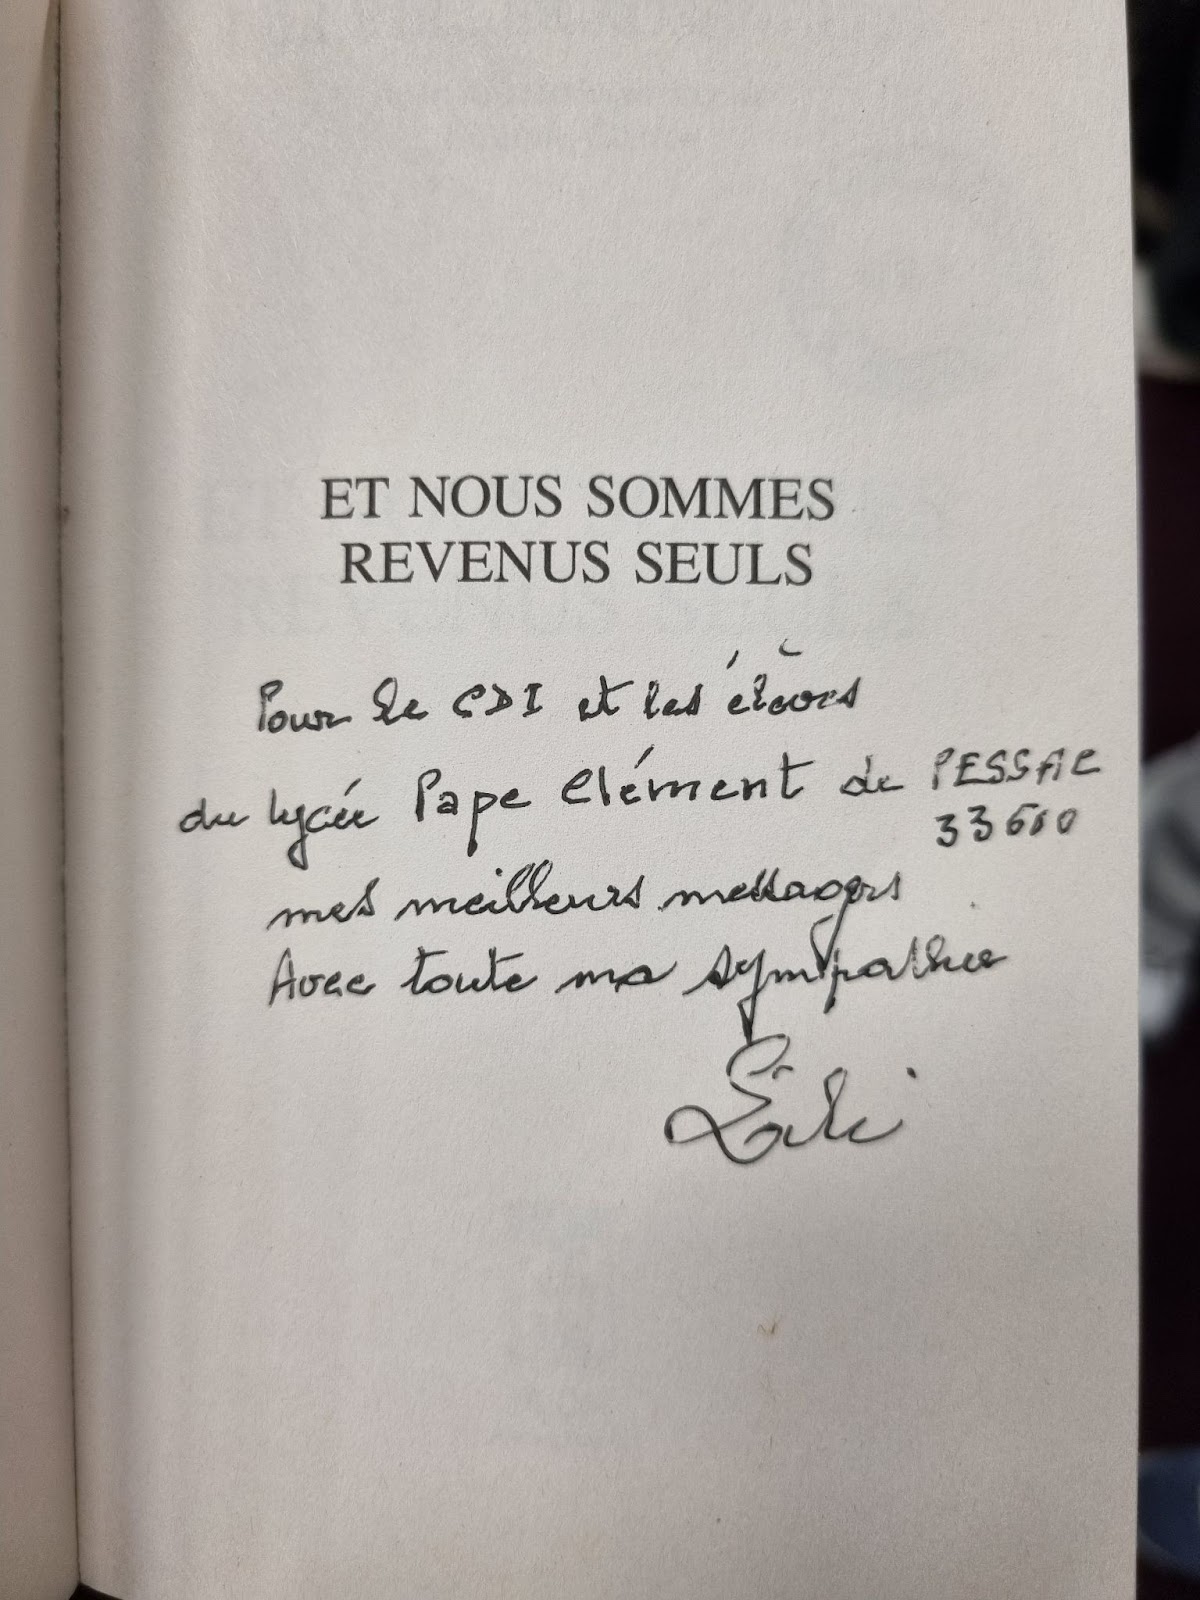 ET NOUS SOMMES
REVENUS SEULS
Pour le CDI et les élèves
du lycée Pape Clément de PESSAC
33600
mes meilleurs messages
Avec toute ma sympathie
Lili